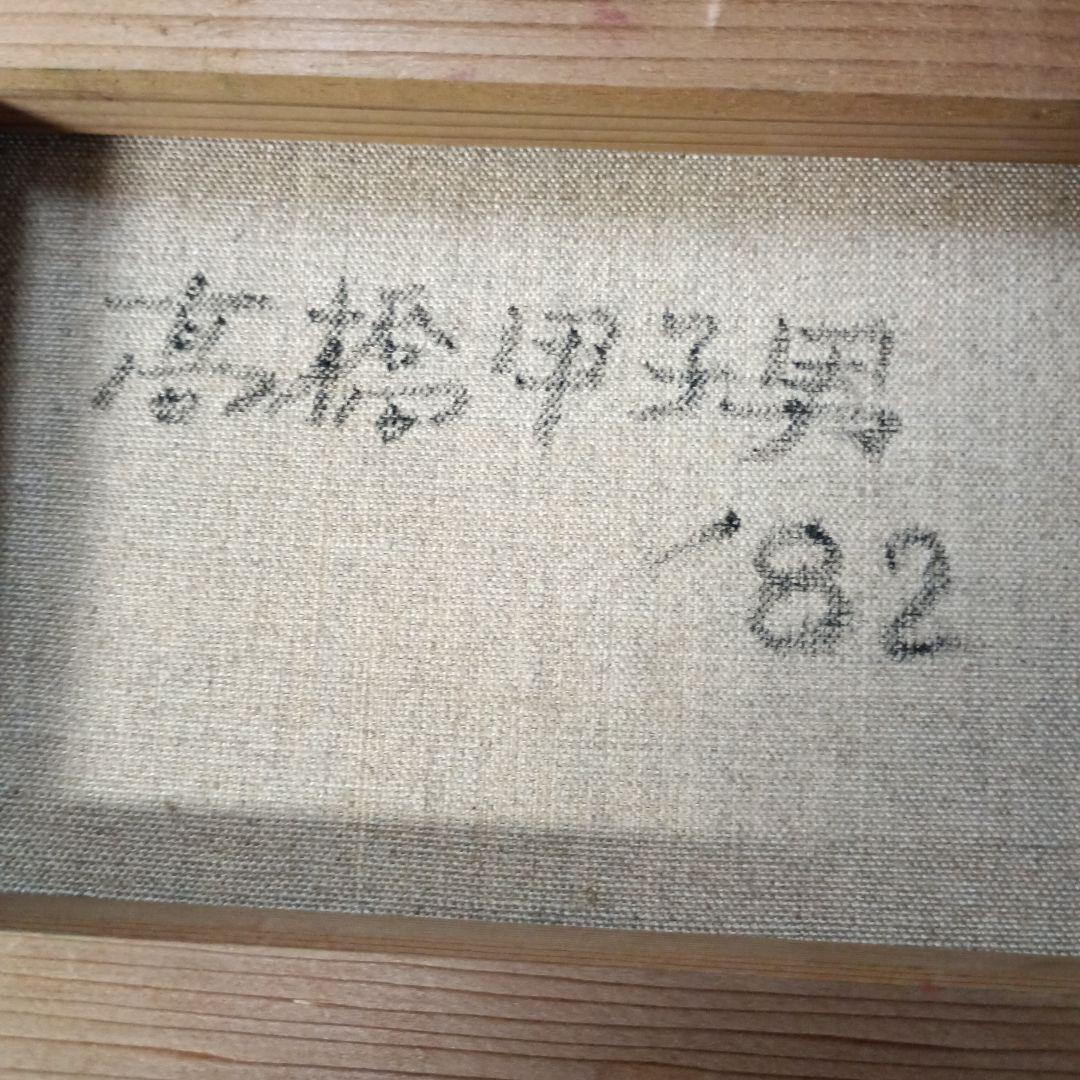 高橋甲子男
'82